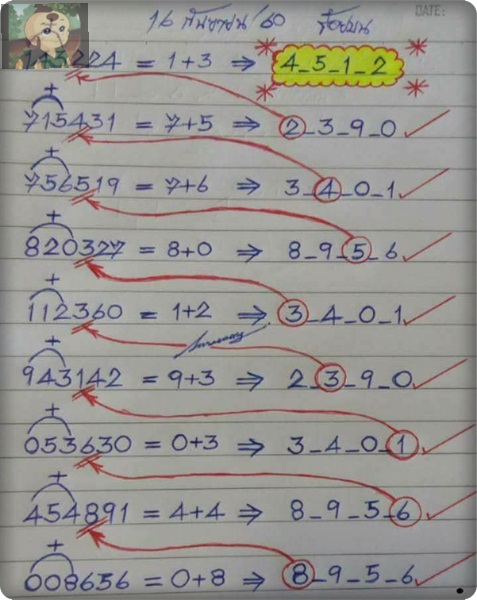 DATE:
16 กันยายน 60 ร้อยบน
143224 = 1+3 ⇒ 4_5_1_2
715431 = 7+5 ⇒ 2_3_9_0
756519 = 7+6 ⇒ 3_4_0_1
820327 = 8+0 ⇒ 8_9_5_6
112360 = 1+2 ⇒ 3_4_0_1
943142 = 9+3 ⇒ 2_3_9_0
053630 = 0+3 ⇒ 3_4_0_1
454891 = 4+4 ⇒ 8_9_5_6
008656 = 0+8 ⇒ 8_9_5_6